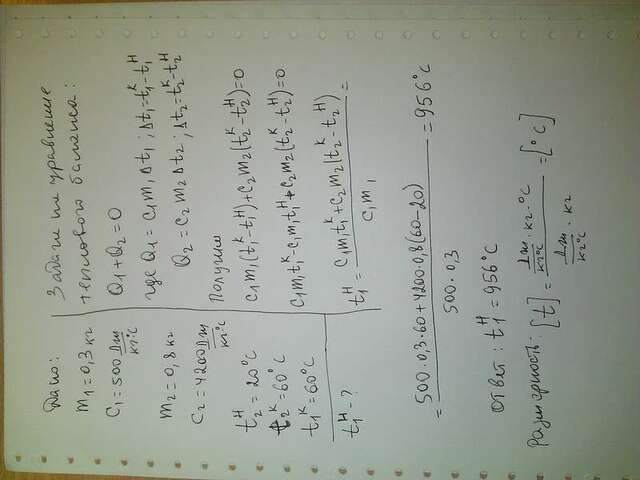 Дано:
m₁=0,3 кг
C₁=500 Дж/кг°C
m₂=0,8 кг
C₂=4200 Дж/кг°C
t₂ᴴ=20°C
t₂ᴷ=60°C
t₁ᴷ=60°C
t₁ᴴ-?
уравнение
теплового баланса:
Q₁+Q₂=0
где Q₁=C₁m₁Δt₁; Δt₁=t₁ᴷ-t₁ᴴ
Q₂=C₂m₂Δt₂; Δt₂=t₂ᴷ-t₂ᴴ
Получим
C₁m₁(t₁ᴷ-t₁ᴴ)+C₂m₂(t₂ᴷ-t₂ᴴ)=0
C₁m₁t₁ᴷ-C₁m₁t₁ᴴ+C₂m₂(t₂ᴷ-t₂ᴴ)=0
t₁ᴴ=(C₁m₁t₁ᴷ+C₂m₂(t₂ᴷ-t₂ᴴ))/(C₁m₁)=
=(500·0,3·60+4200·0,8(60-20))/(500·0,3)=956°C
Ответ: t₁ᴴ=956°C
Размерность: [t]=(Дж/кг°C·кг·°C)/(Дж/кг°C·кг)=[°C]